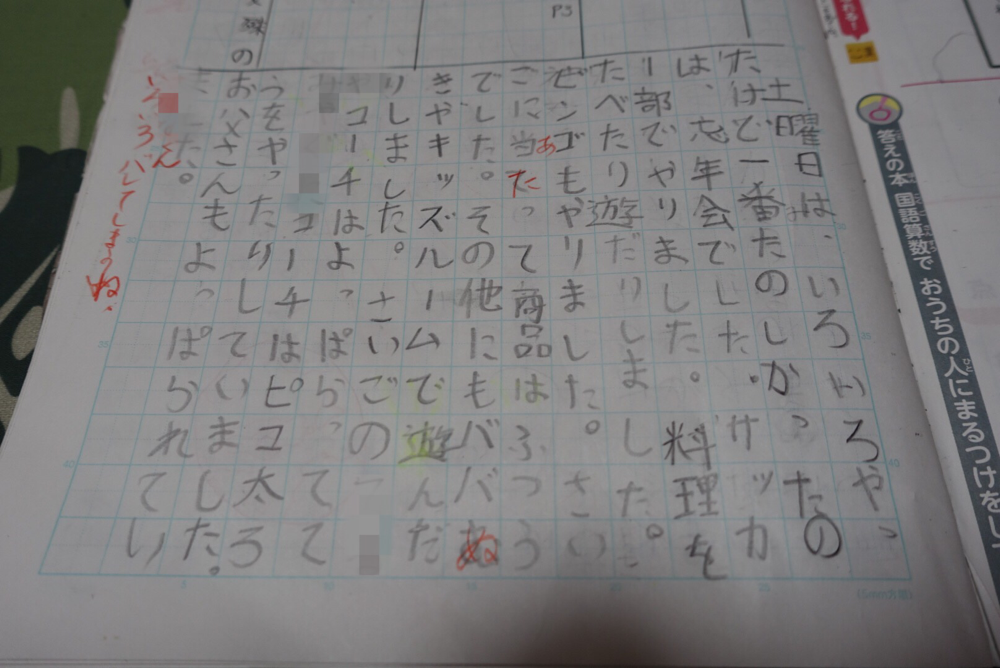 土曜日は、いろいろやっ
たけど一番たのしかったの
は、忘年会でした。サッカ
ー部でやりました。料理を
たべたり遊だりしました。
ビンゴもやりました。さい
ごに当たって商品はふつう
あ
でした。その他にもババぬ
きやキッズルームで遊んだ
りしました。さいごの
コーチはよっぱらって
コーチはピコ太ろ
うをやったりしていました。
お父さんもよっぱられてい
た。
いろいろバレてしまうね。
答えの本 国語算数で おうちの人にまるつけをし